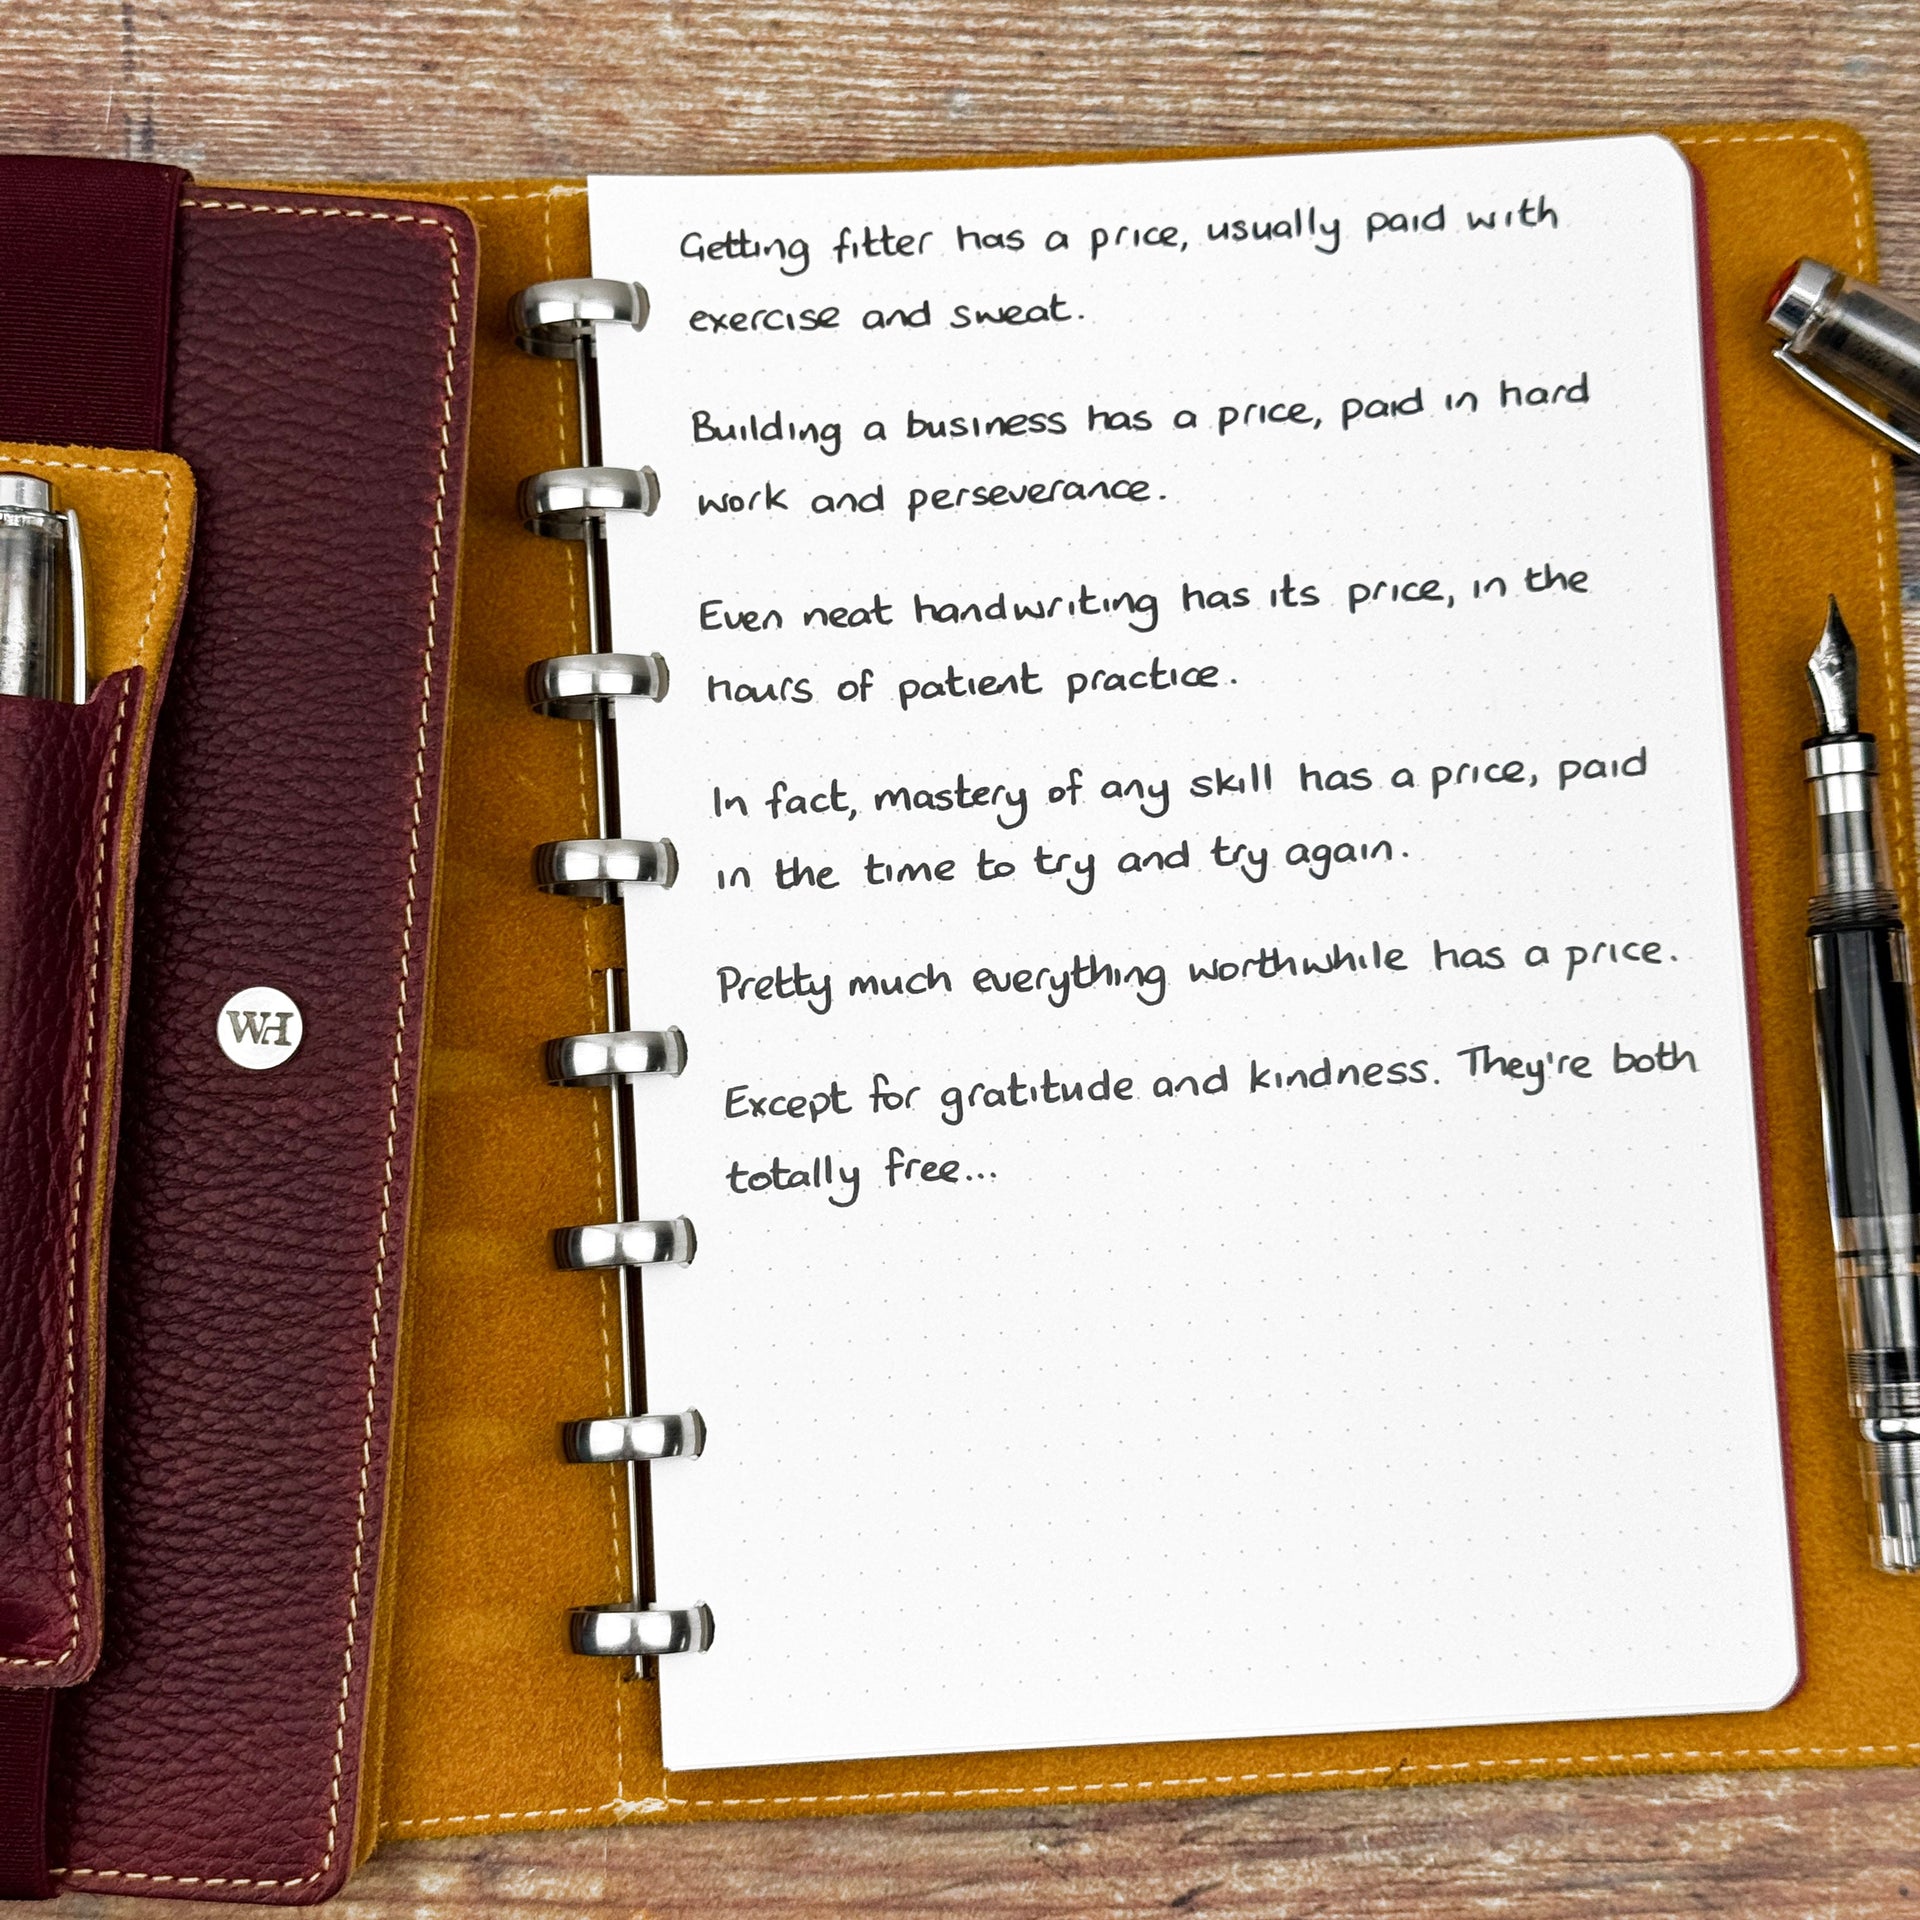 Getting fitter has a price, usually paid with
exercise and sweat.
Building a business has a price, paid in hard
work and perseverance.
Even neat handwriting has its price, in the
hours of patient practice.
In fact, mastery of any skill has a price, paid
in the time to try and try again.
Pretty much everything worthwhile has a price.
Except for gratitude and kindness. They're both
totally free...
WH